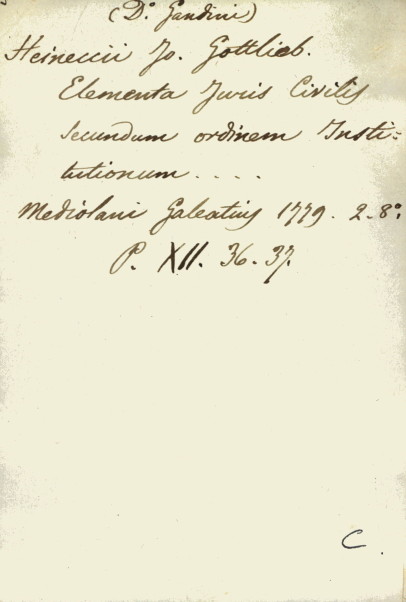 (D.º Gandini)
Heineccii Jo. Gottlieb.
Elementa Juris Civilis
secundum ordinem Insti=
tutionum . . . .
Mediolani Galeatius 1779. 2-8º.
P. XII. 36-37.
C.